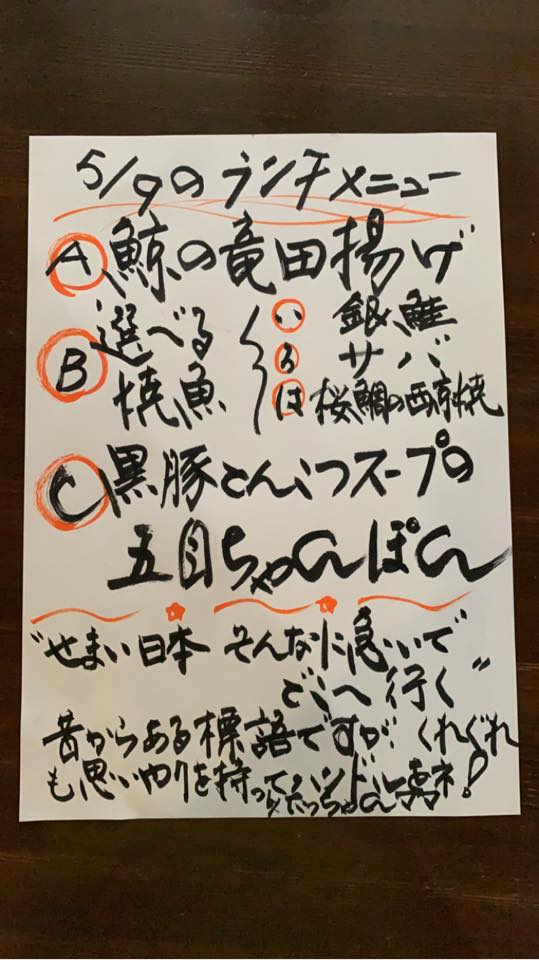 5/9のランチメニュー
A 鯨の竜田揚げ
B 選べる焼魚
い 銀鮭
ろ サバ
は 桜鯛の西京焼
C 黒豚とんこつスープの
五目ちゃんぽん
"せまい日本 そんなに急いで
どこへ行く"
昔からある標語ですが くれぐれ
も思いやりを持ってハンドルを!